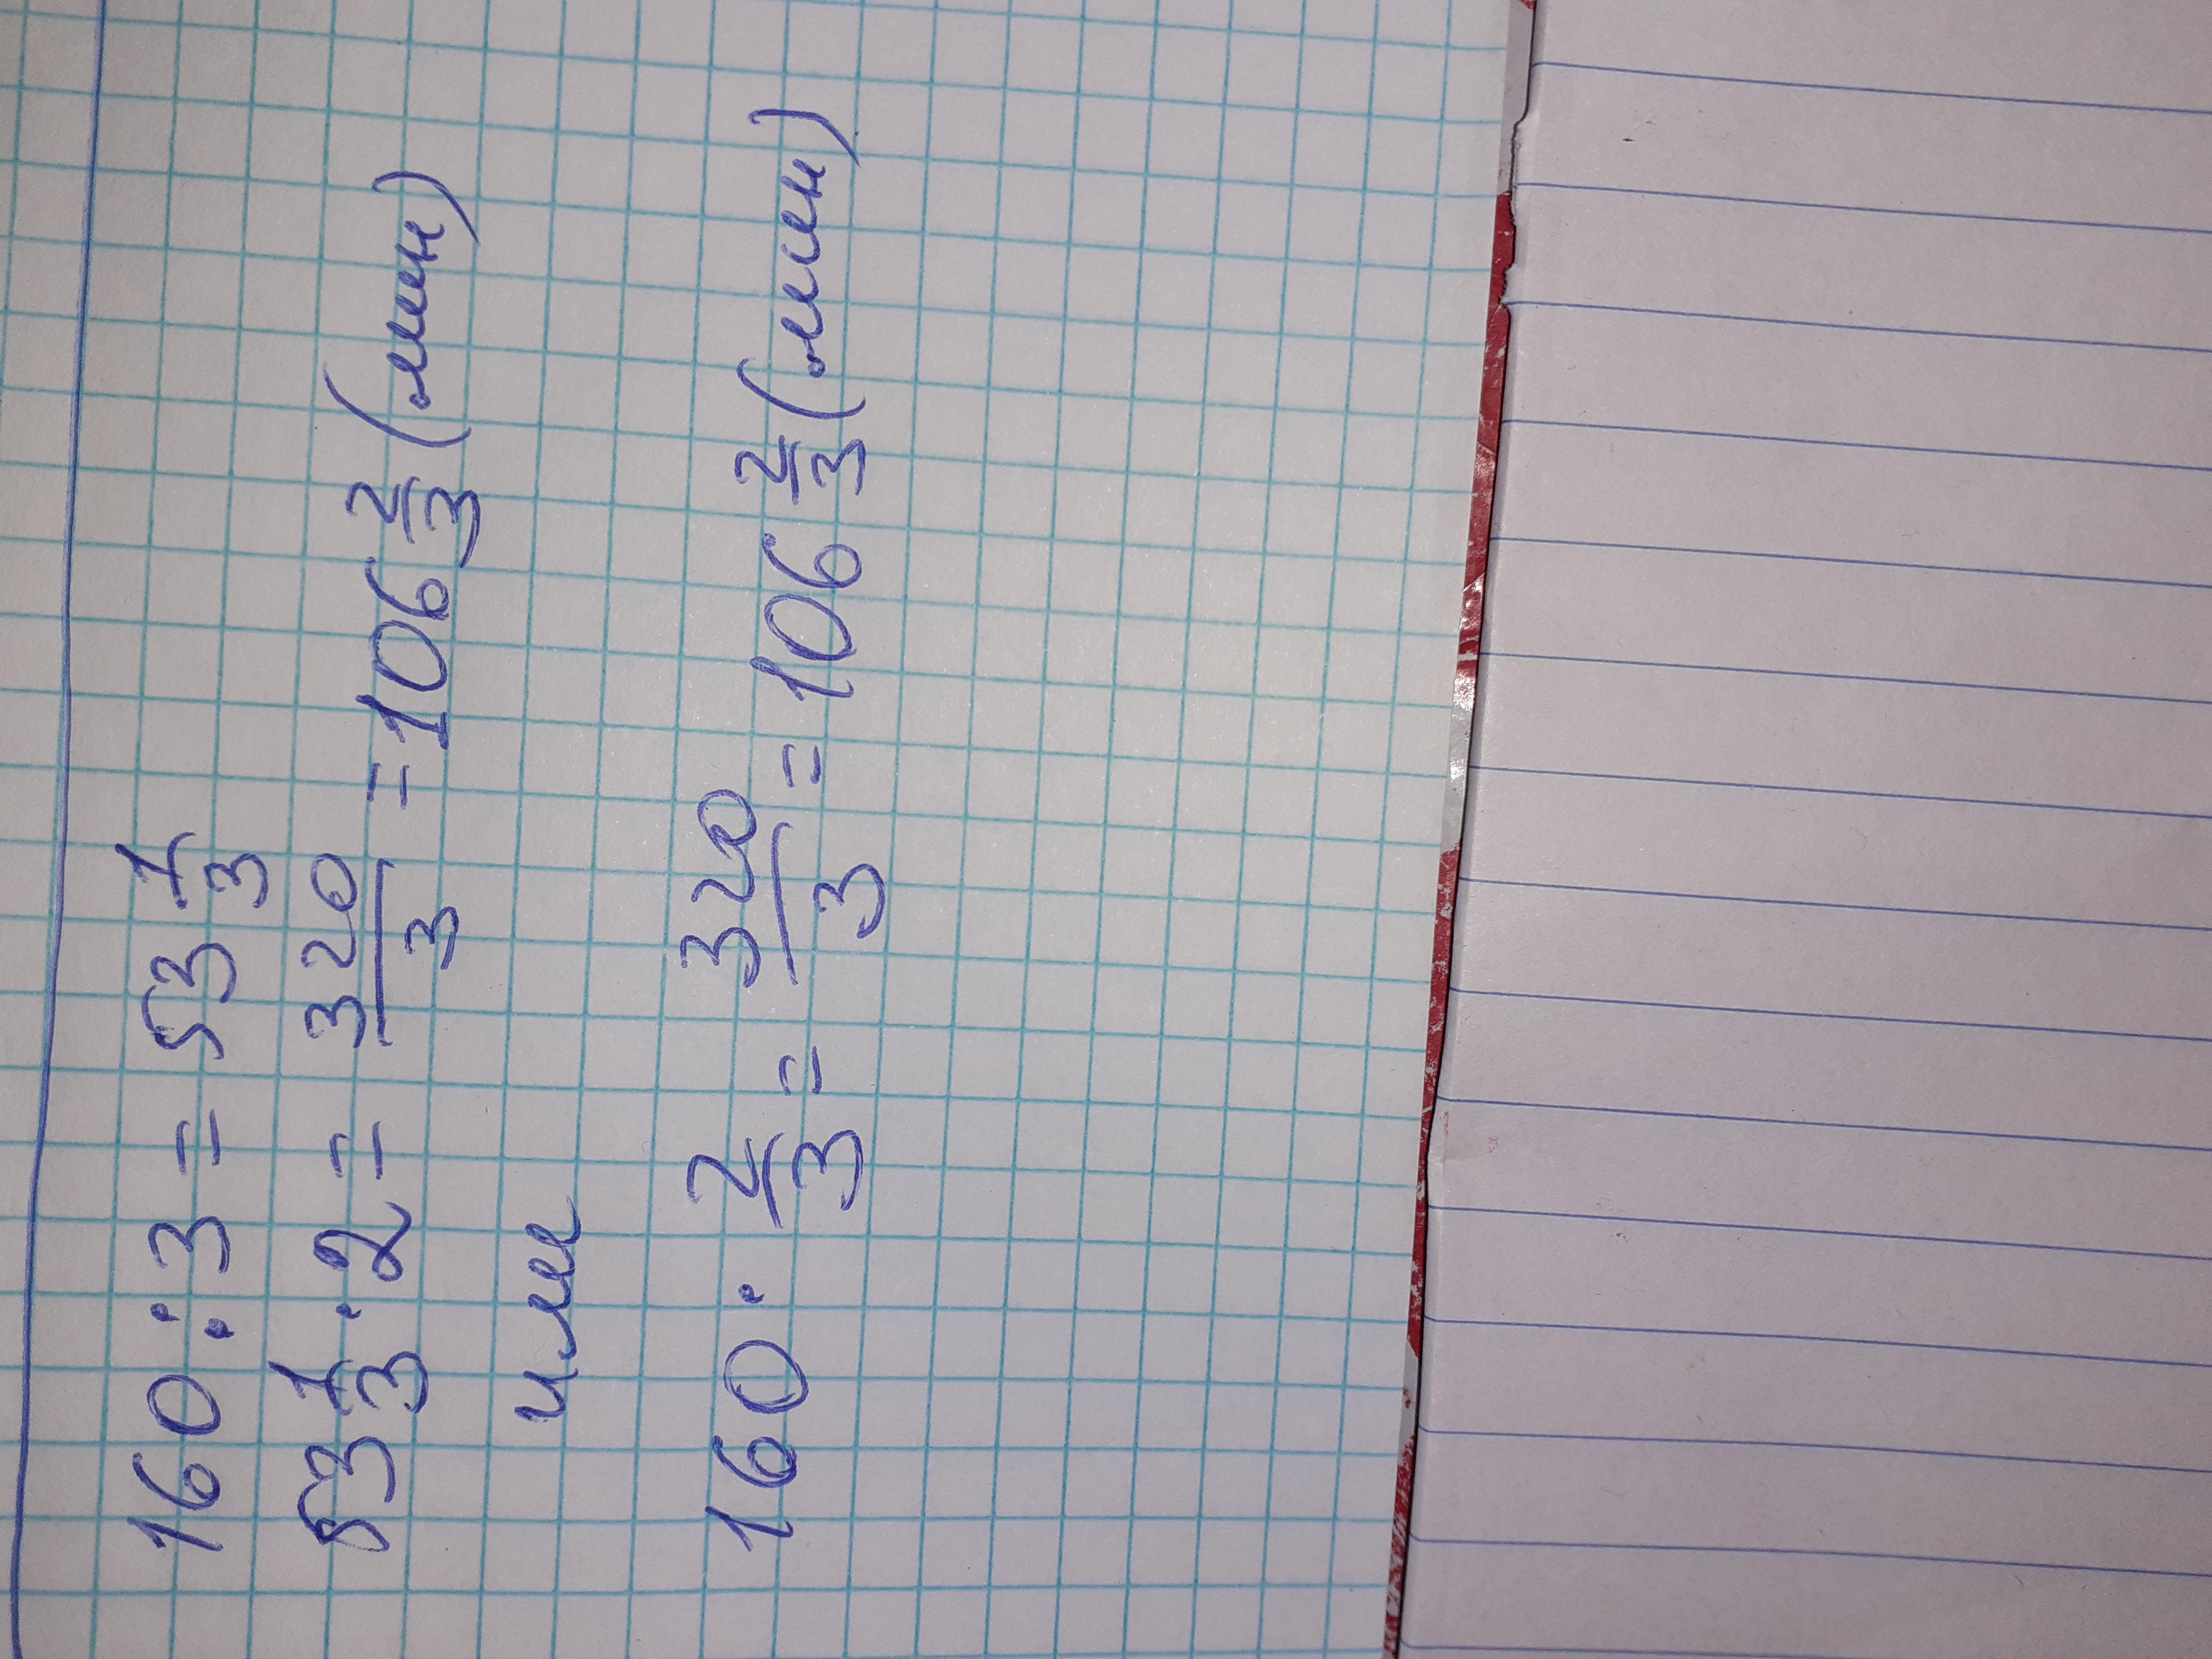 160 : 3 = 53 1/3
53 1/3 · 2 = 320/3 = 106 2/3 (мин)
или
160 · 2/3 = 320/3 = 106 2/3 (мин)